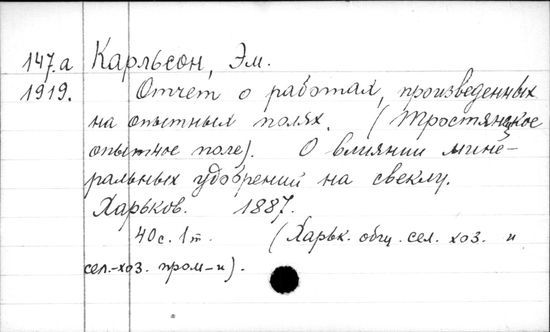 147.а Карльсон, Эм.
1919. Отчет о работах, произведенных
на опытных полях. (Тростянецкое
опытное поле). О влиянии мине-
ральных удобрений на свеклу.
Харьков. 1887.
40с. 1т. (Харьк. общ. сел. хоз. и
сел.-хоз. пром-и).